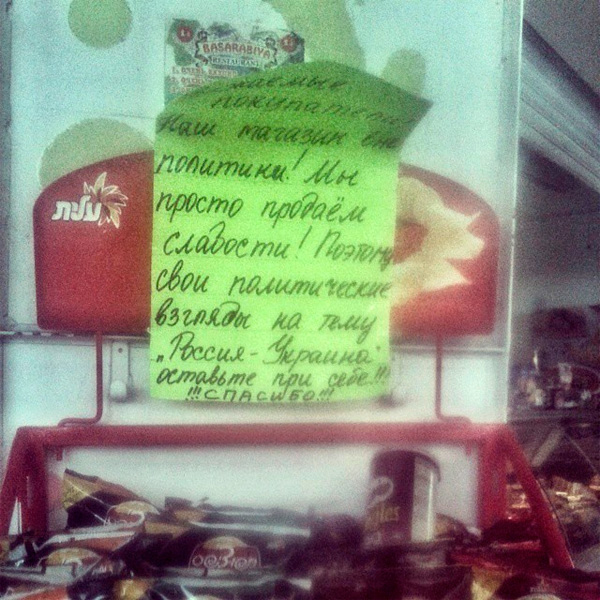 BASARABIYA
RESTAURANT
покупатели
Наш магазин вне
политики! Мы
просто продаём
сладости! Поэтому
свои политические
взгляды на тему
„Россия-Украина"
оставьте при себе!!!
!!!СПАСИБО!!!
עלית